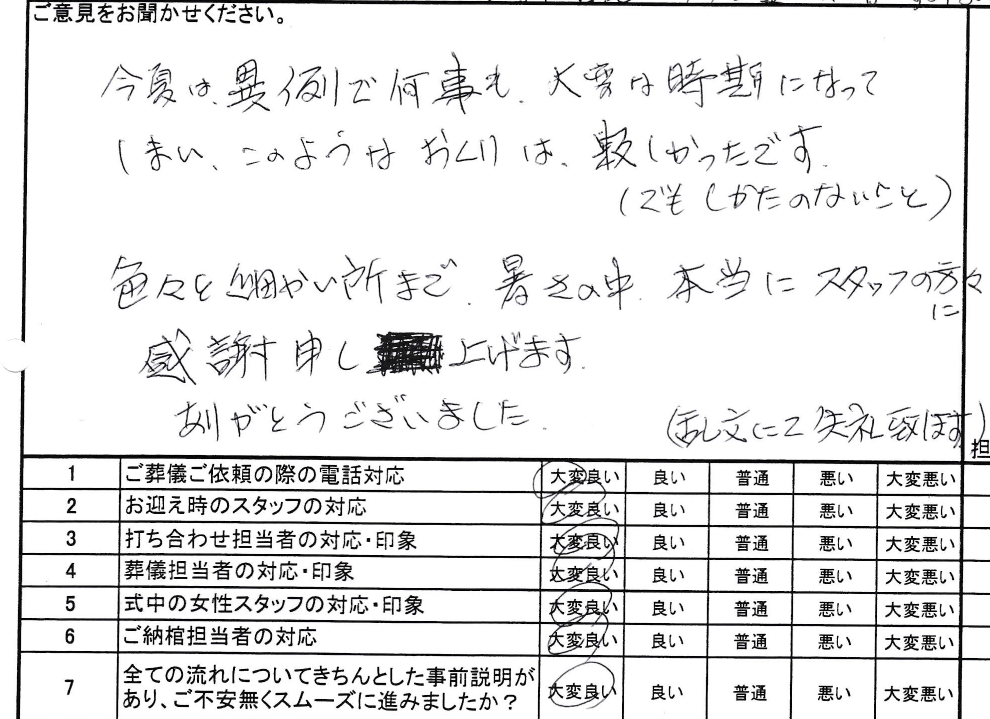 ご意見をお聞かせください。
今夏は、異例で何事も、大変な時期になって
しまい、このようなおくりは、厳しかったです。
(でもしかたのないこと)
色々と細かい所まで、暑さの中、本当にスタッフの方々
に
感謝申し上げます。
ありがとうございました。
(乱文にて失礼致します)
担
1 ご葬儀ご依頼の際の電話対応 大変良い 良い 普通 悪い 大変悪い
2 お迎え時のスタッフの対応 大変良い 良い 普通 悪い 大変悪い
3 打ち合わせ担当者の対応・印象 大変良い 良い 普通 悪い 大変悪い
4 葬儀担当者の対応・印象 大変良い 良い 普通 悪い 大変悪い
5 式中の女性スタッフの対応・印象 大変良い 良い 普通 悪い 大変悪い
6 ご納棺担当者の対応 大変良い 良い 普通 悪い 大変悪い
7 全ての流れについてきちんとした事前説明が
あり、ご不安無くスムーズに進みましたか？ 大変良い 良い 普通 悪い 大変悪い